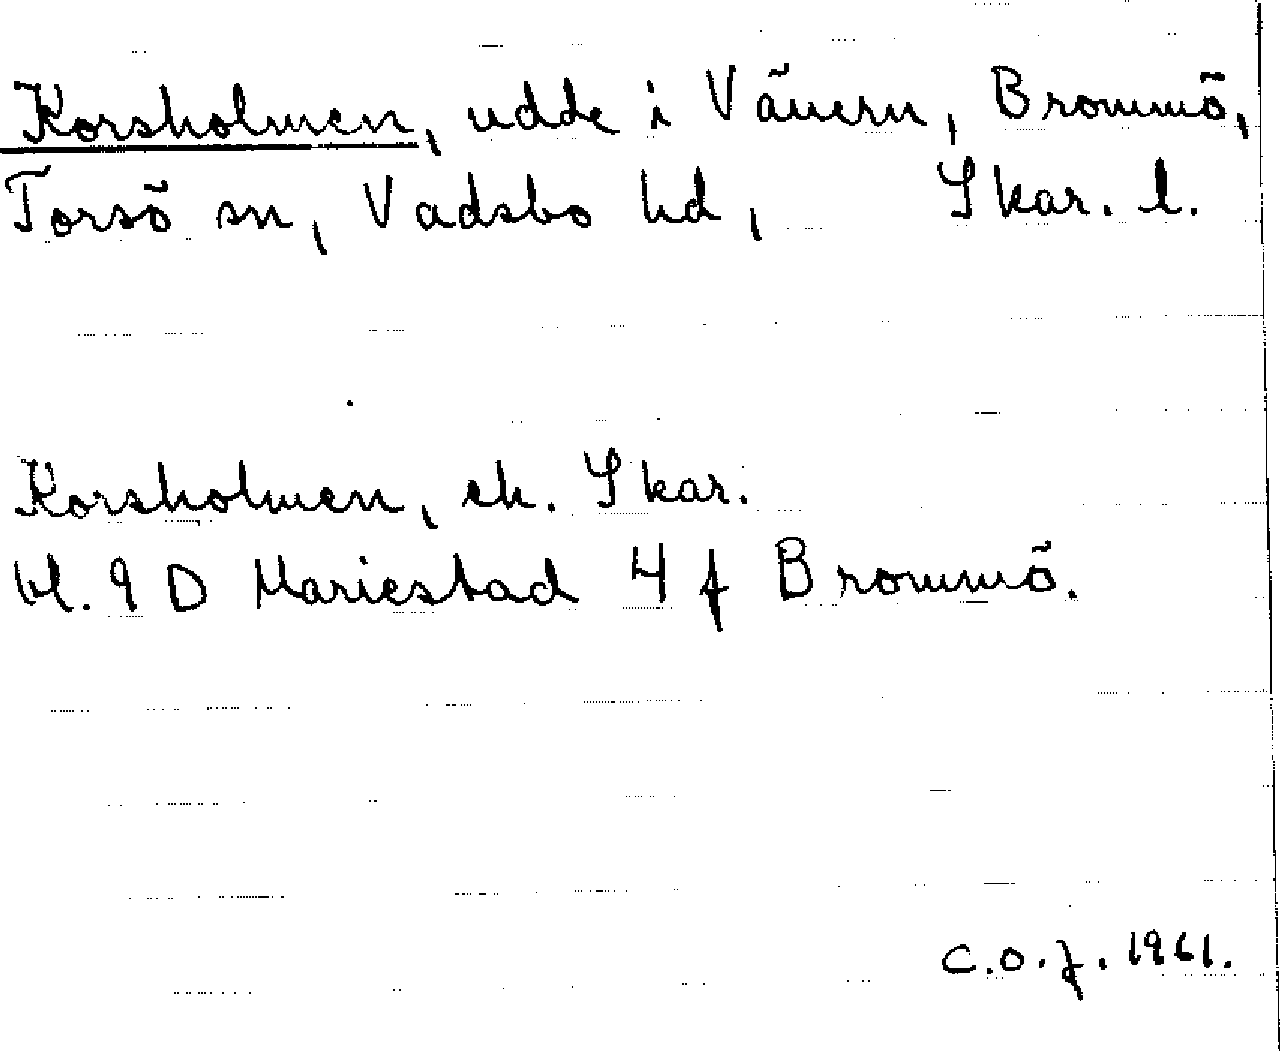 Korsholmen, udde i Vänern, Brommö,
Torsö sn, Vadsbo hd, Skar. l.
Korsholmen, ek. Skar.
bl. 9 D Mariestad 4 f Brommö.
C.O.F. 1961.